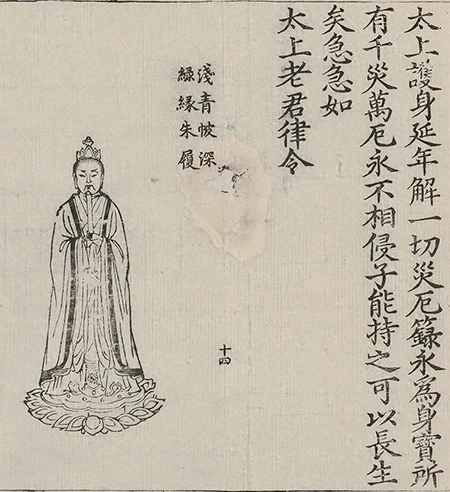 太上護身延年解一切災厄籙永爲身寶所
有千災萬厄永不相侵子能持之可以長生
矣急急如
太上老君律令
淺青帔深
緑緣朱履
十四